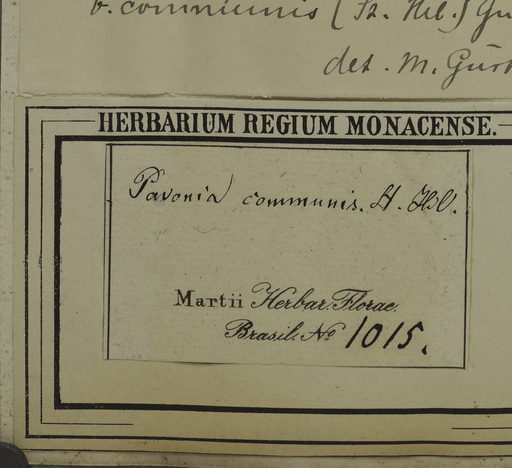 b. communis (St. Hil.) Gü
det. M. Gür
HERBARIUM REGIUM MONACENSE.
Pavonia communis. St. Hil.
Martii Herbar. Florae
Brasil. No 1015.